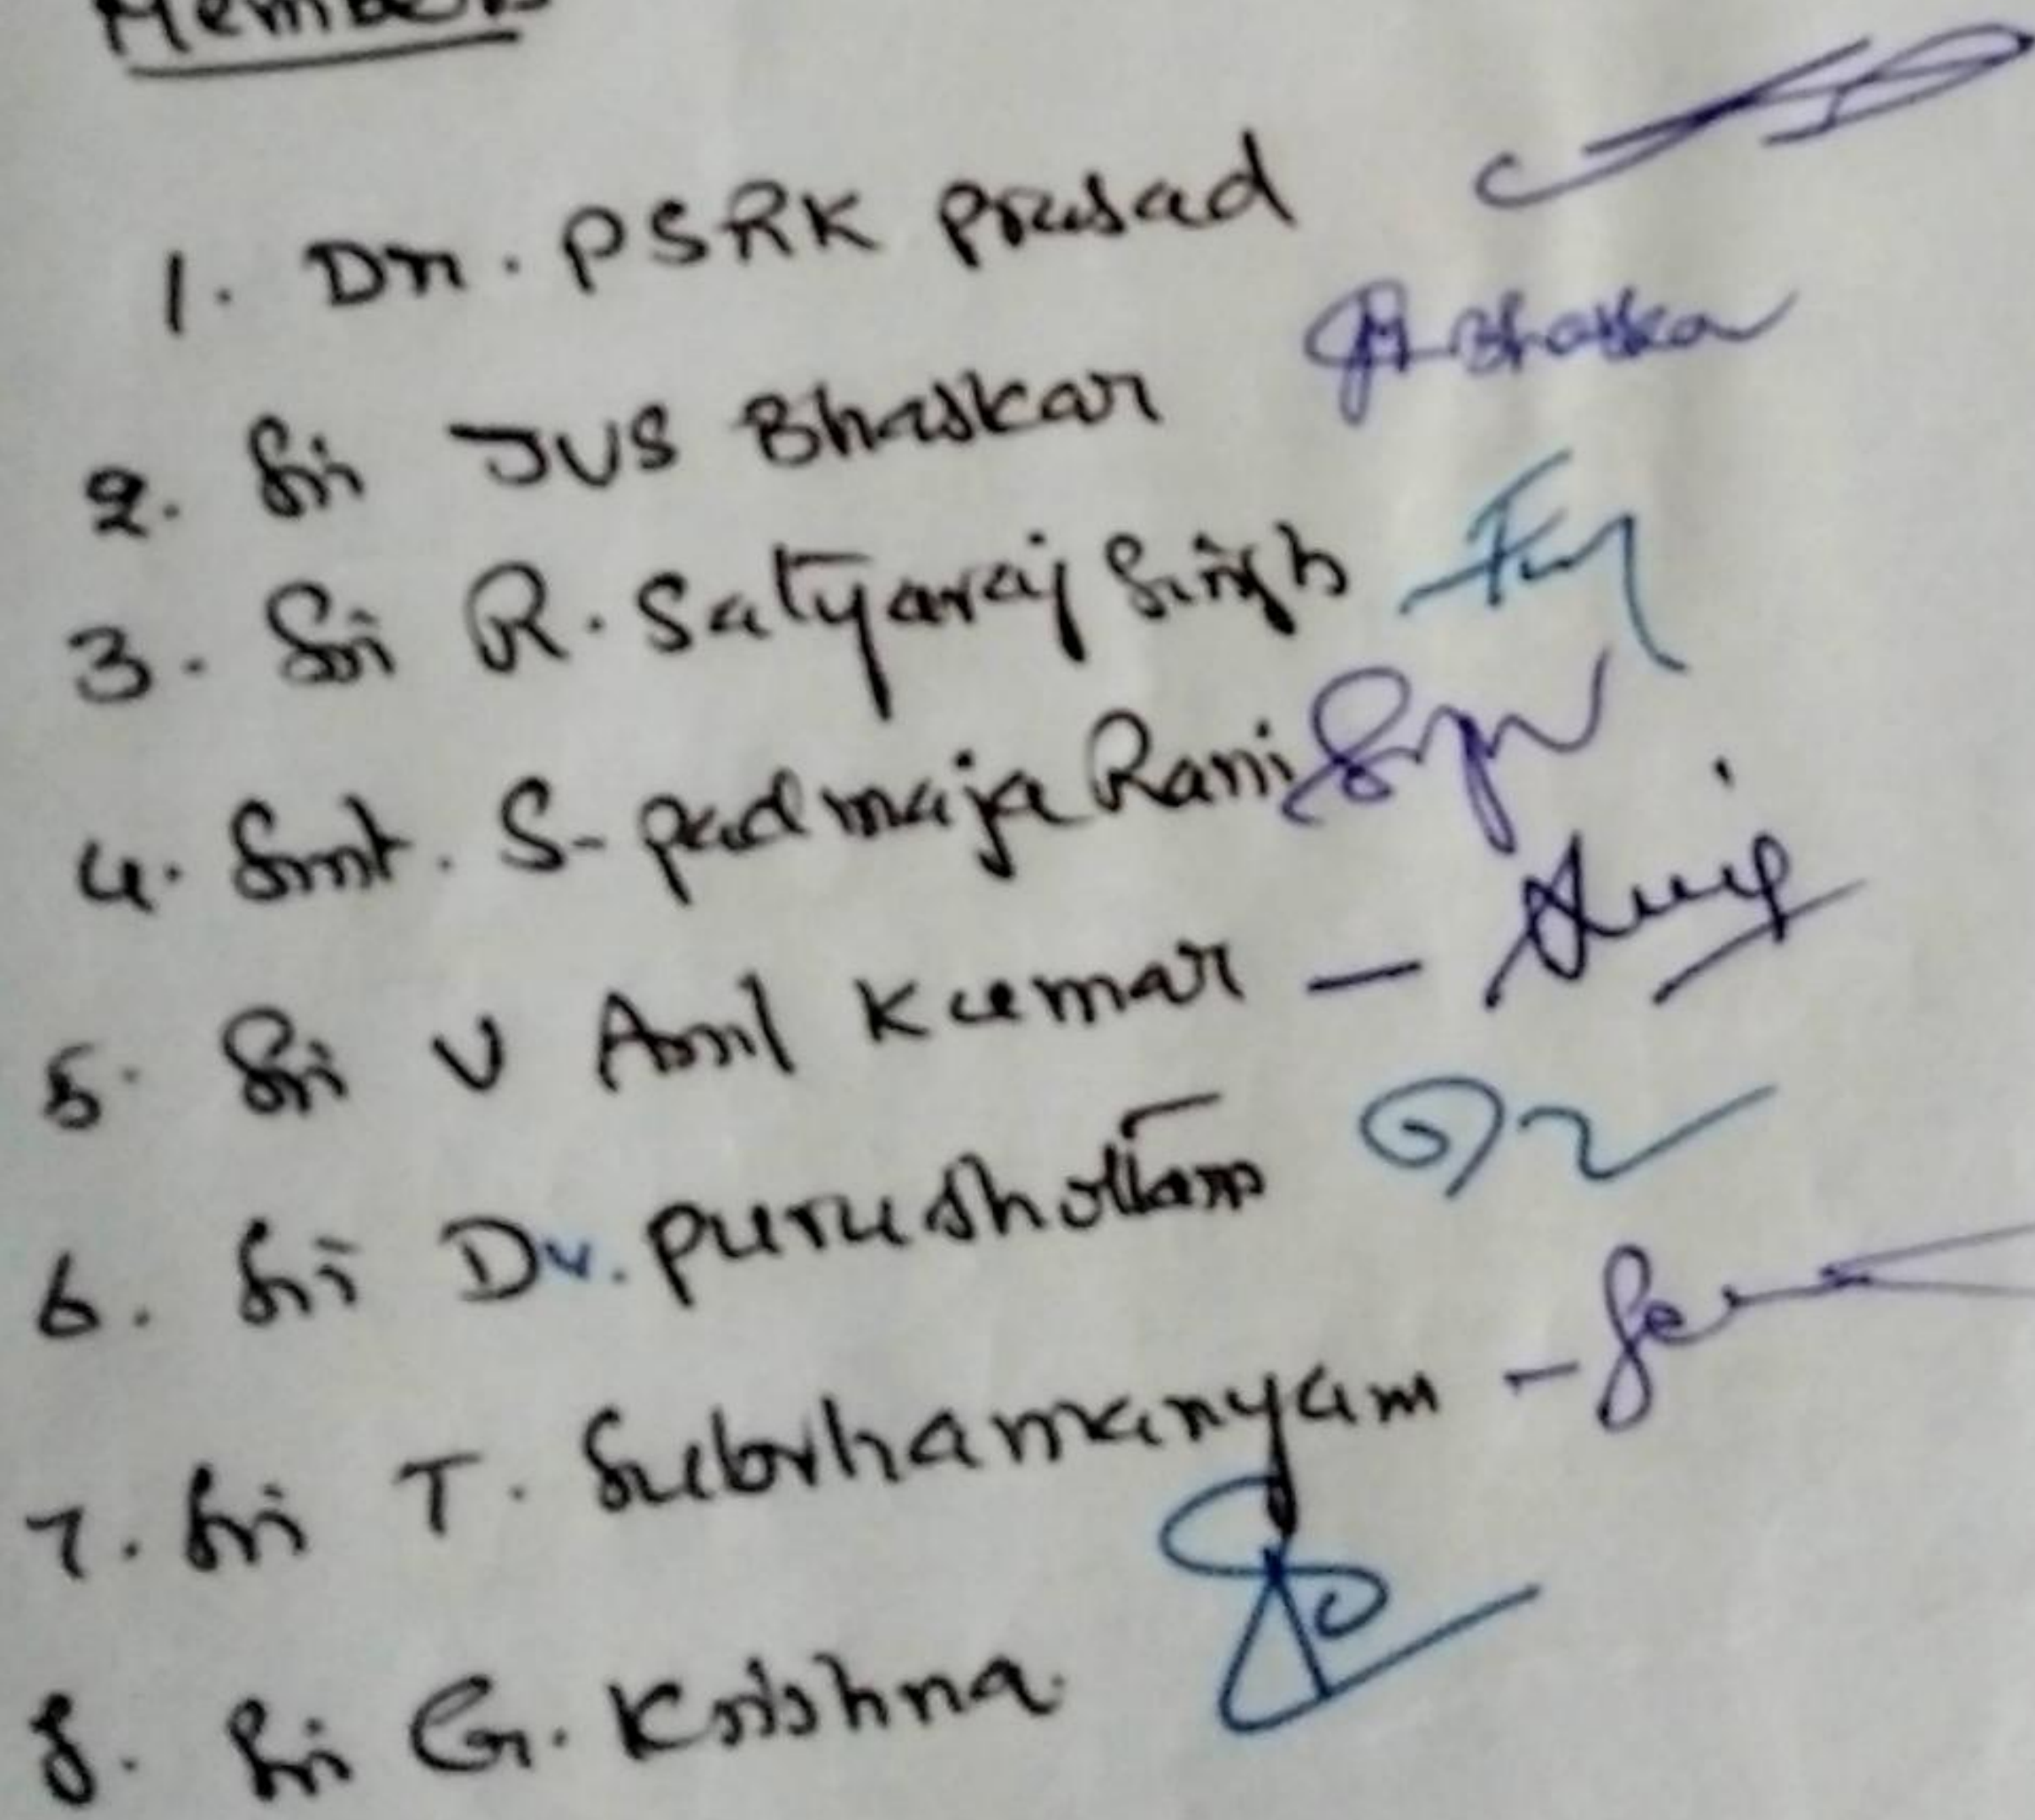 Members
1. Dr. PSRK Prasad
2. Sri JVS Bhaskar Bhaskar
3. Sri R. Satyaraj Singh
4. Smt. S. Padmaja Rani
5. Sri V Anil Kumar -
6. Sri Dv. Purushottam
7. Sri T. Subrhamanyam -
8. Sri G. Krishna